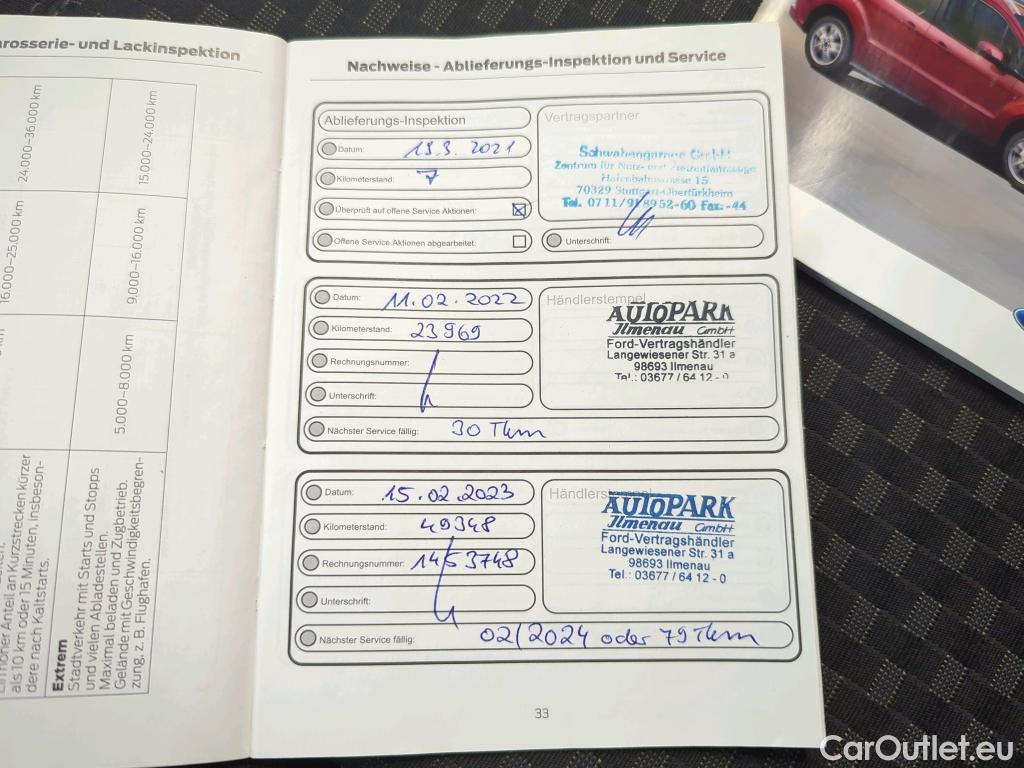 rosserie- und Lackinspektion
24.000–36.000 km
15.000–24.000 km
16.000–25.000 km
9.000–16.000 km
5.000–8.000 km
Anteil an Kurzstrecken kürzer
als 10 km oder 15 Minuten, insbeson-
dere nach Kaltstarts.
Extrem
Stadtverkehr mit Starts und Stopps
und vielen Abladestellen.
Maximal beladen und Zugbetrieb.
Gelände mit Geschwindigkeitsbegren-
zung, z. B. Flughafen.
Nachweise - Ablieferungs-Inspektion und Service
Ablieferungs-Inspektion
Datum:
Kilometerstand: 7
Überprüft auf offene Service Aktionen:
Offene Service Aktionen abgearbeitet:
Vertragspartner
Schwabengarage GmbH
Zentrum für Nutz- und
15
70329 Stuttgart-Obertürkheim
Tel. 0711/9 8952-60 Fax.-44
Unterschrift:
Datum: 11.02.2022
Kilometerstand: 23969
Rechnungsnummer:
Unterschrift:
Nächster Service fällig: 30 Tkm
Händlerstempel
AUTOPARK
Ilmenau GmbH
Ford-Vertragshändler
Langewiesener Str. 31 a
98693 Ilmenau
Tel.: 03677 / 64 12 - 0
Datum: 15.02.2023
Kilometerstand: 49348
Rechnungsnummer: 14153748
Unterschrift:
Nächster Service fällig: 02/2024 oder 79 Tkm
Händlerstempel
AUTOPARK
Ilmenau GmbH
Ford-Vertragshändler
Langewiesener Str. 31 a
98693 Ilmenau
Tel.: 03677 / 64 12 - 0
33
CarOutlet.eu